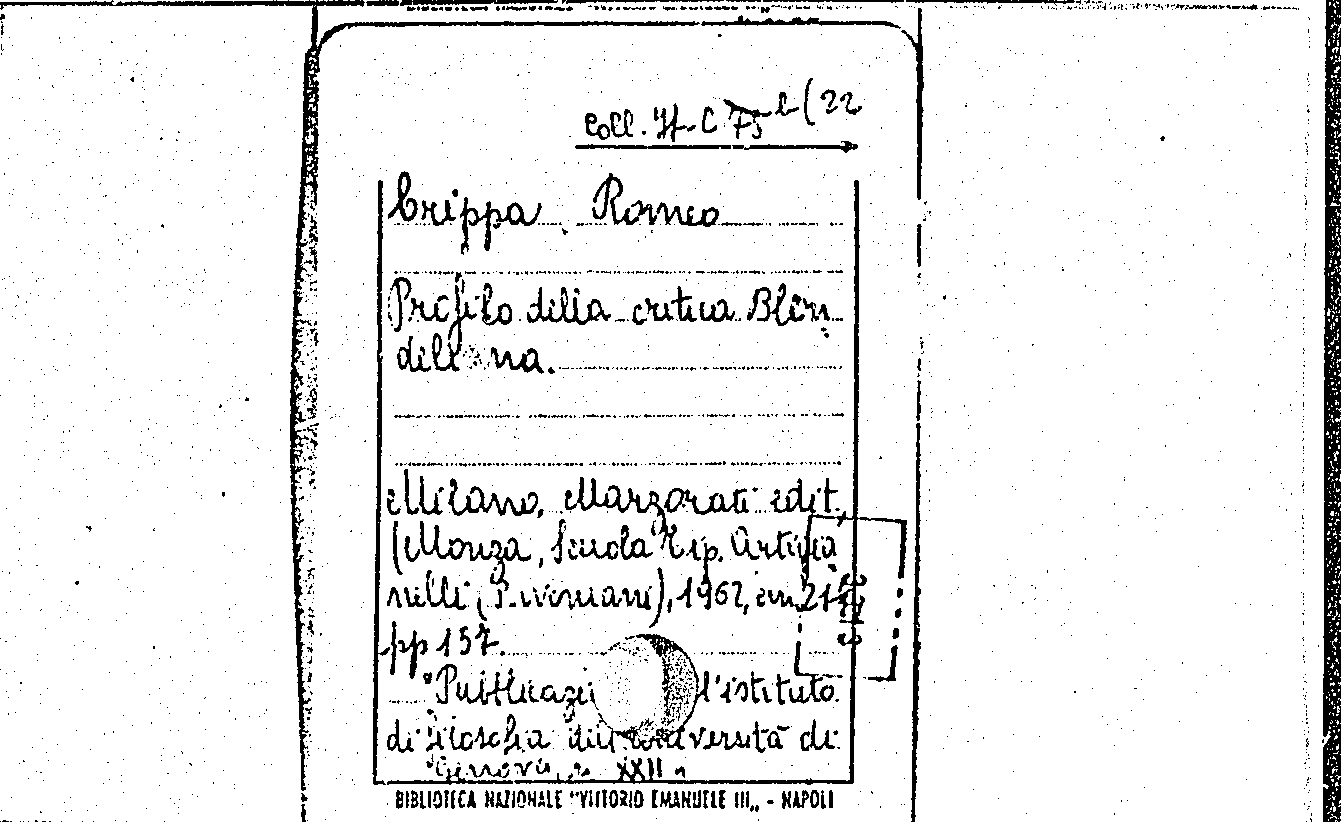 Coll. H. C 75 b (22
Crippa Romeo
Profilo della critica Blon
delliana.
Milano, Marzorati edit.
(Monza, Scuola Tip. Artigia
nelli ( ), 1962, in 21
pp 157.
"Pubblicazi l'istituto
di filosofia dell'università di
Genova, n. XXII"
BIBLIOTECA NAZIONALE "VITTORIO EMANUELE III„ - NAPOLI